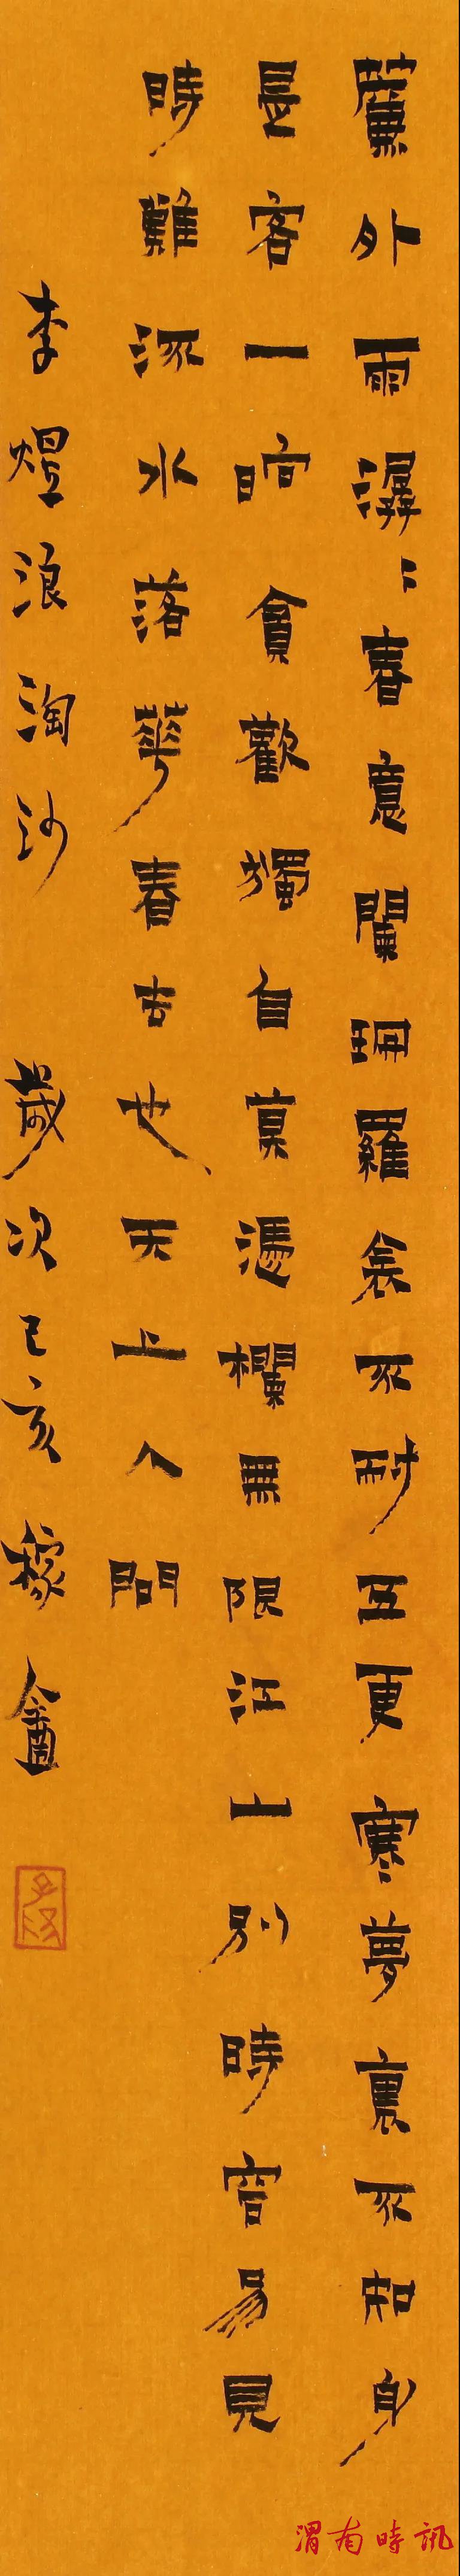 簾外雨潺〻春意闌珊羅衾不耐五更寒夢裏不知身
是客一晌貪歡獨自莫憑欄無限江山別時容易見
時難流水落華春去也天上人間
李煜浪淘沙 歲次己亥 橡盦
渭南時訊